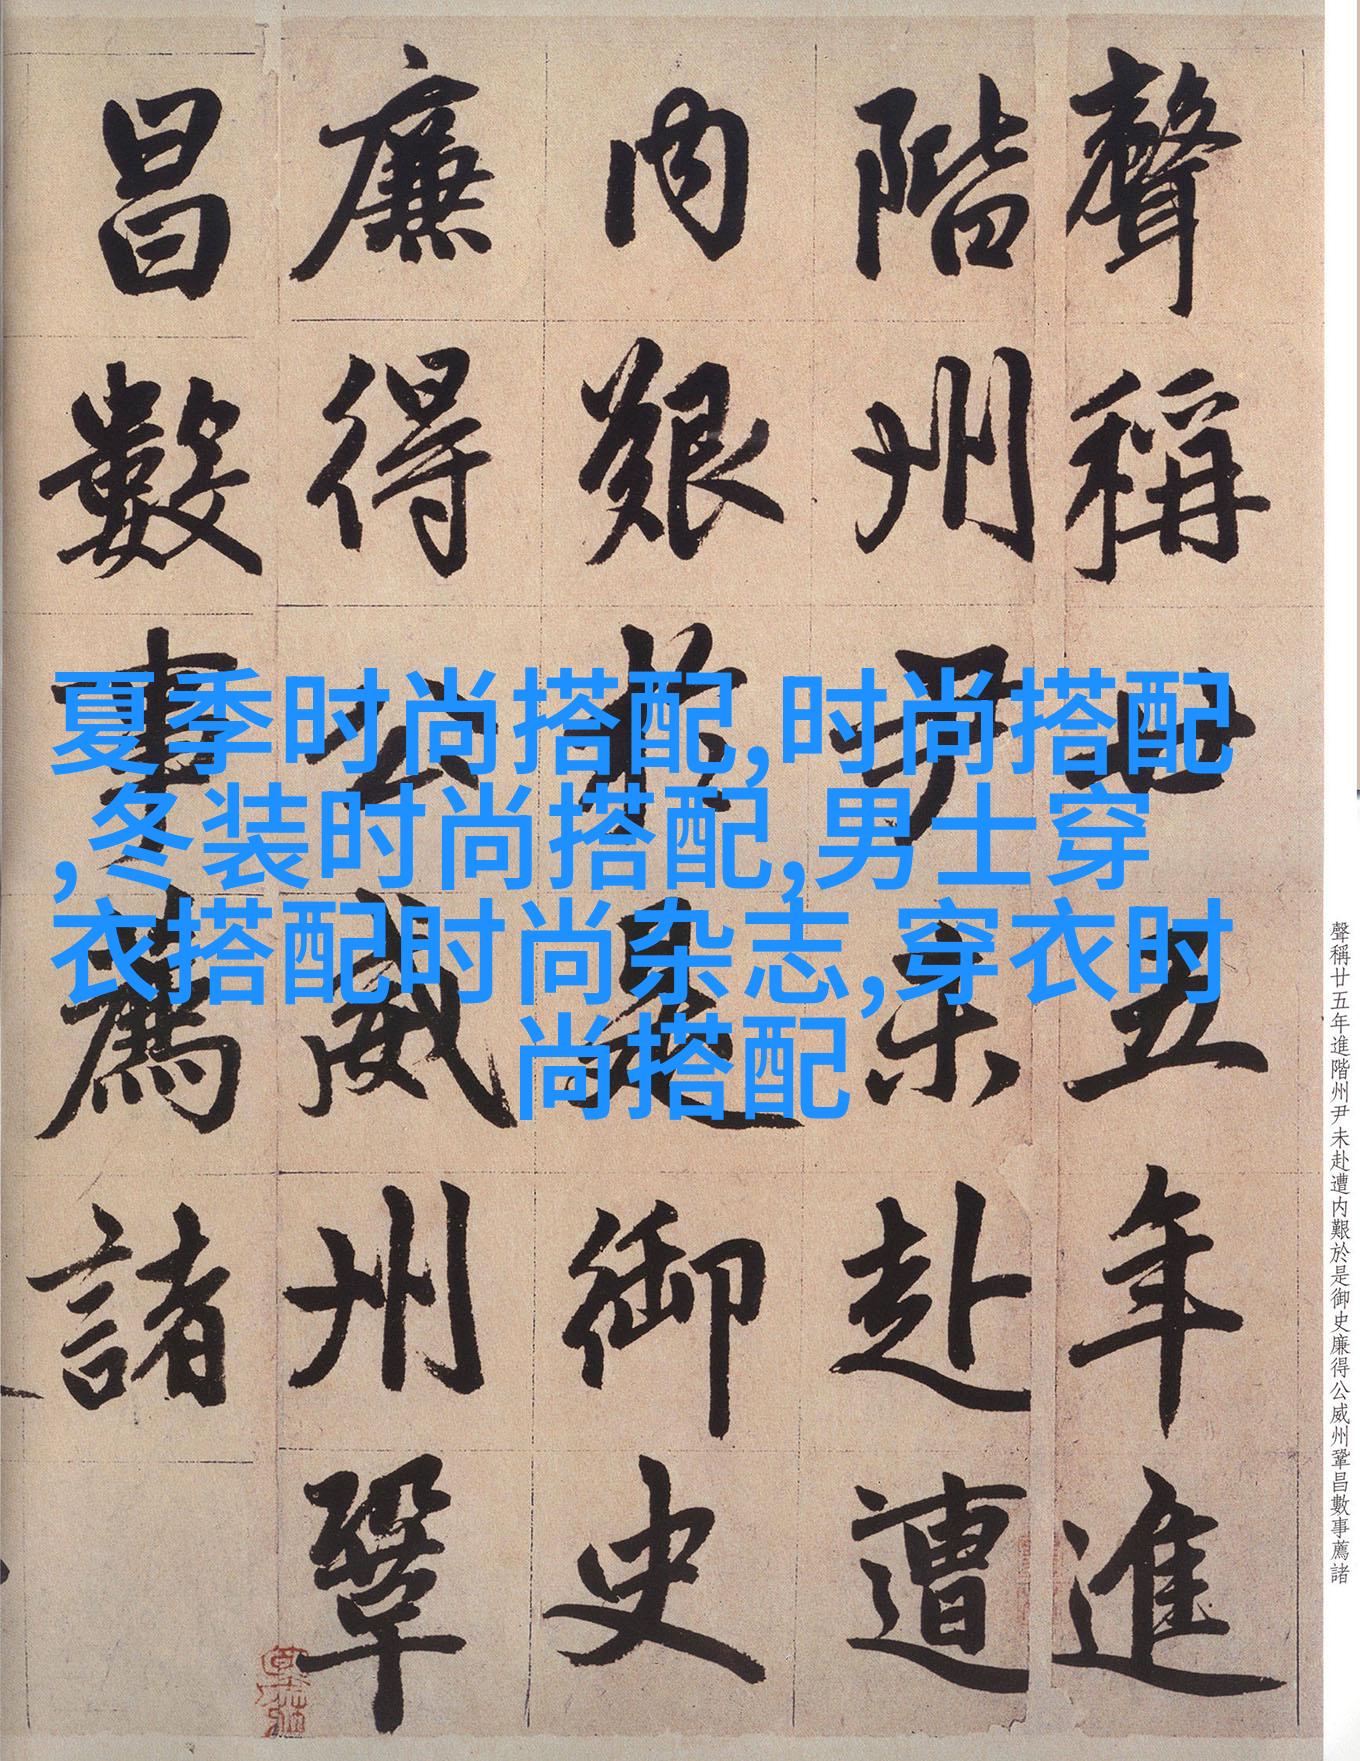 聲稱廿五年進
階州尹未赴遭
内艱於是御史
廉得公威州鞏
昌數事薦諸
夏季时尚搭配,时尚搭配
,冬装时尚搭配,男士穿
衣搭配时尚杂志,穿衣时
尚搭配
聲稱廿五年進階州尹未赴遭内艱於是御史廉得公威州鞏昌數事薦諸